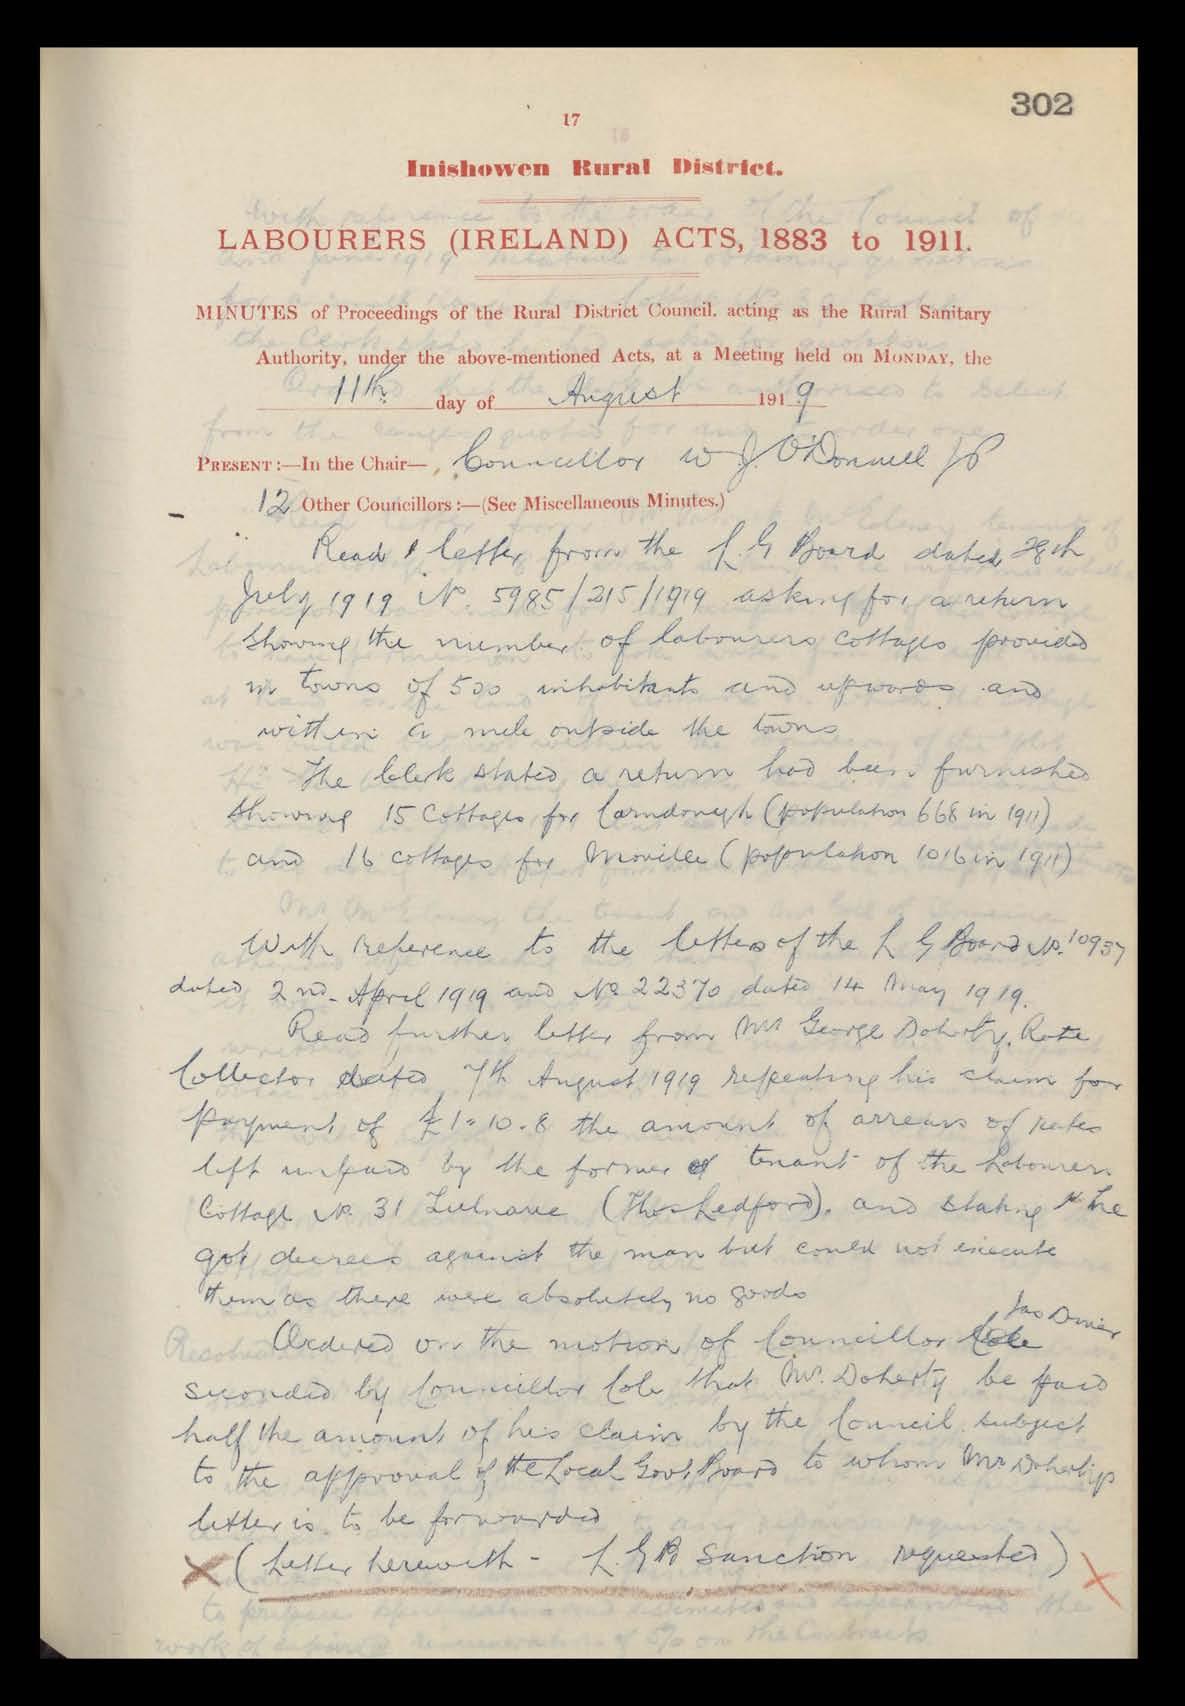 302
17
Inishowen Rural District.
LABOURERS (IRELAND) ACTS, 1883 to 1911.
MINUTES of Proceedings of the Rural District Council, acting as the Rural Sanitary
Authority, under the above-mentioned Acts, at a Meeting held on MONDAY, the
11th day of August 1919
PRESENT :—In the Chair— Councillor W J. O'Donnell JP
12 Other Councillors :—(See Miscellaneous Minutes.)
Read letter from the L. G Board dated 28th
July 1919 No. 5985/215/1919 asking for a return
showing the number of labourers cottages provided
in towns of 500 inhabitants and upwards and
within a mile outside the towns
The Clerk stated a return had been furnished
showing 15 Cottages for Carndonagh (population 668 in 1911)
and 16 cottages for Moville (population 1016 in 1911)
With reference to the letters of the L G Board No. 10937
dated 2nd April 1919 and No 22370 dated 14 May 1919.
Read further letter from Mr George Doherty, Rate
Collector dated 7th August 1919 repeating his claim for
payment of £1-10-8 the amount of arrears of rates
left unpaid by the former tenant of the Labourers
Cottage No. 31 (Thos Ledford), and stating he
got decrees against the man but could not execute
them as there were absolutely no goods
Ordered on the motion of Councillor Jas
seconded by Councillor Cole that Mr. Doherty be paid
half the amount of his claim by the Council subject
to the approval of the Local Govt Board to whom Mr Doherty's
letter is to be forwarded
(Letter herewith - L. G B Sanction requested)